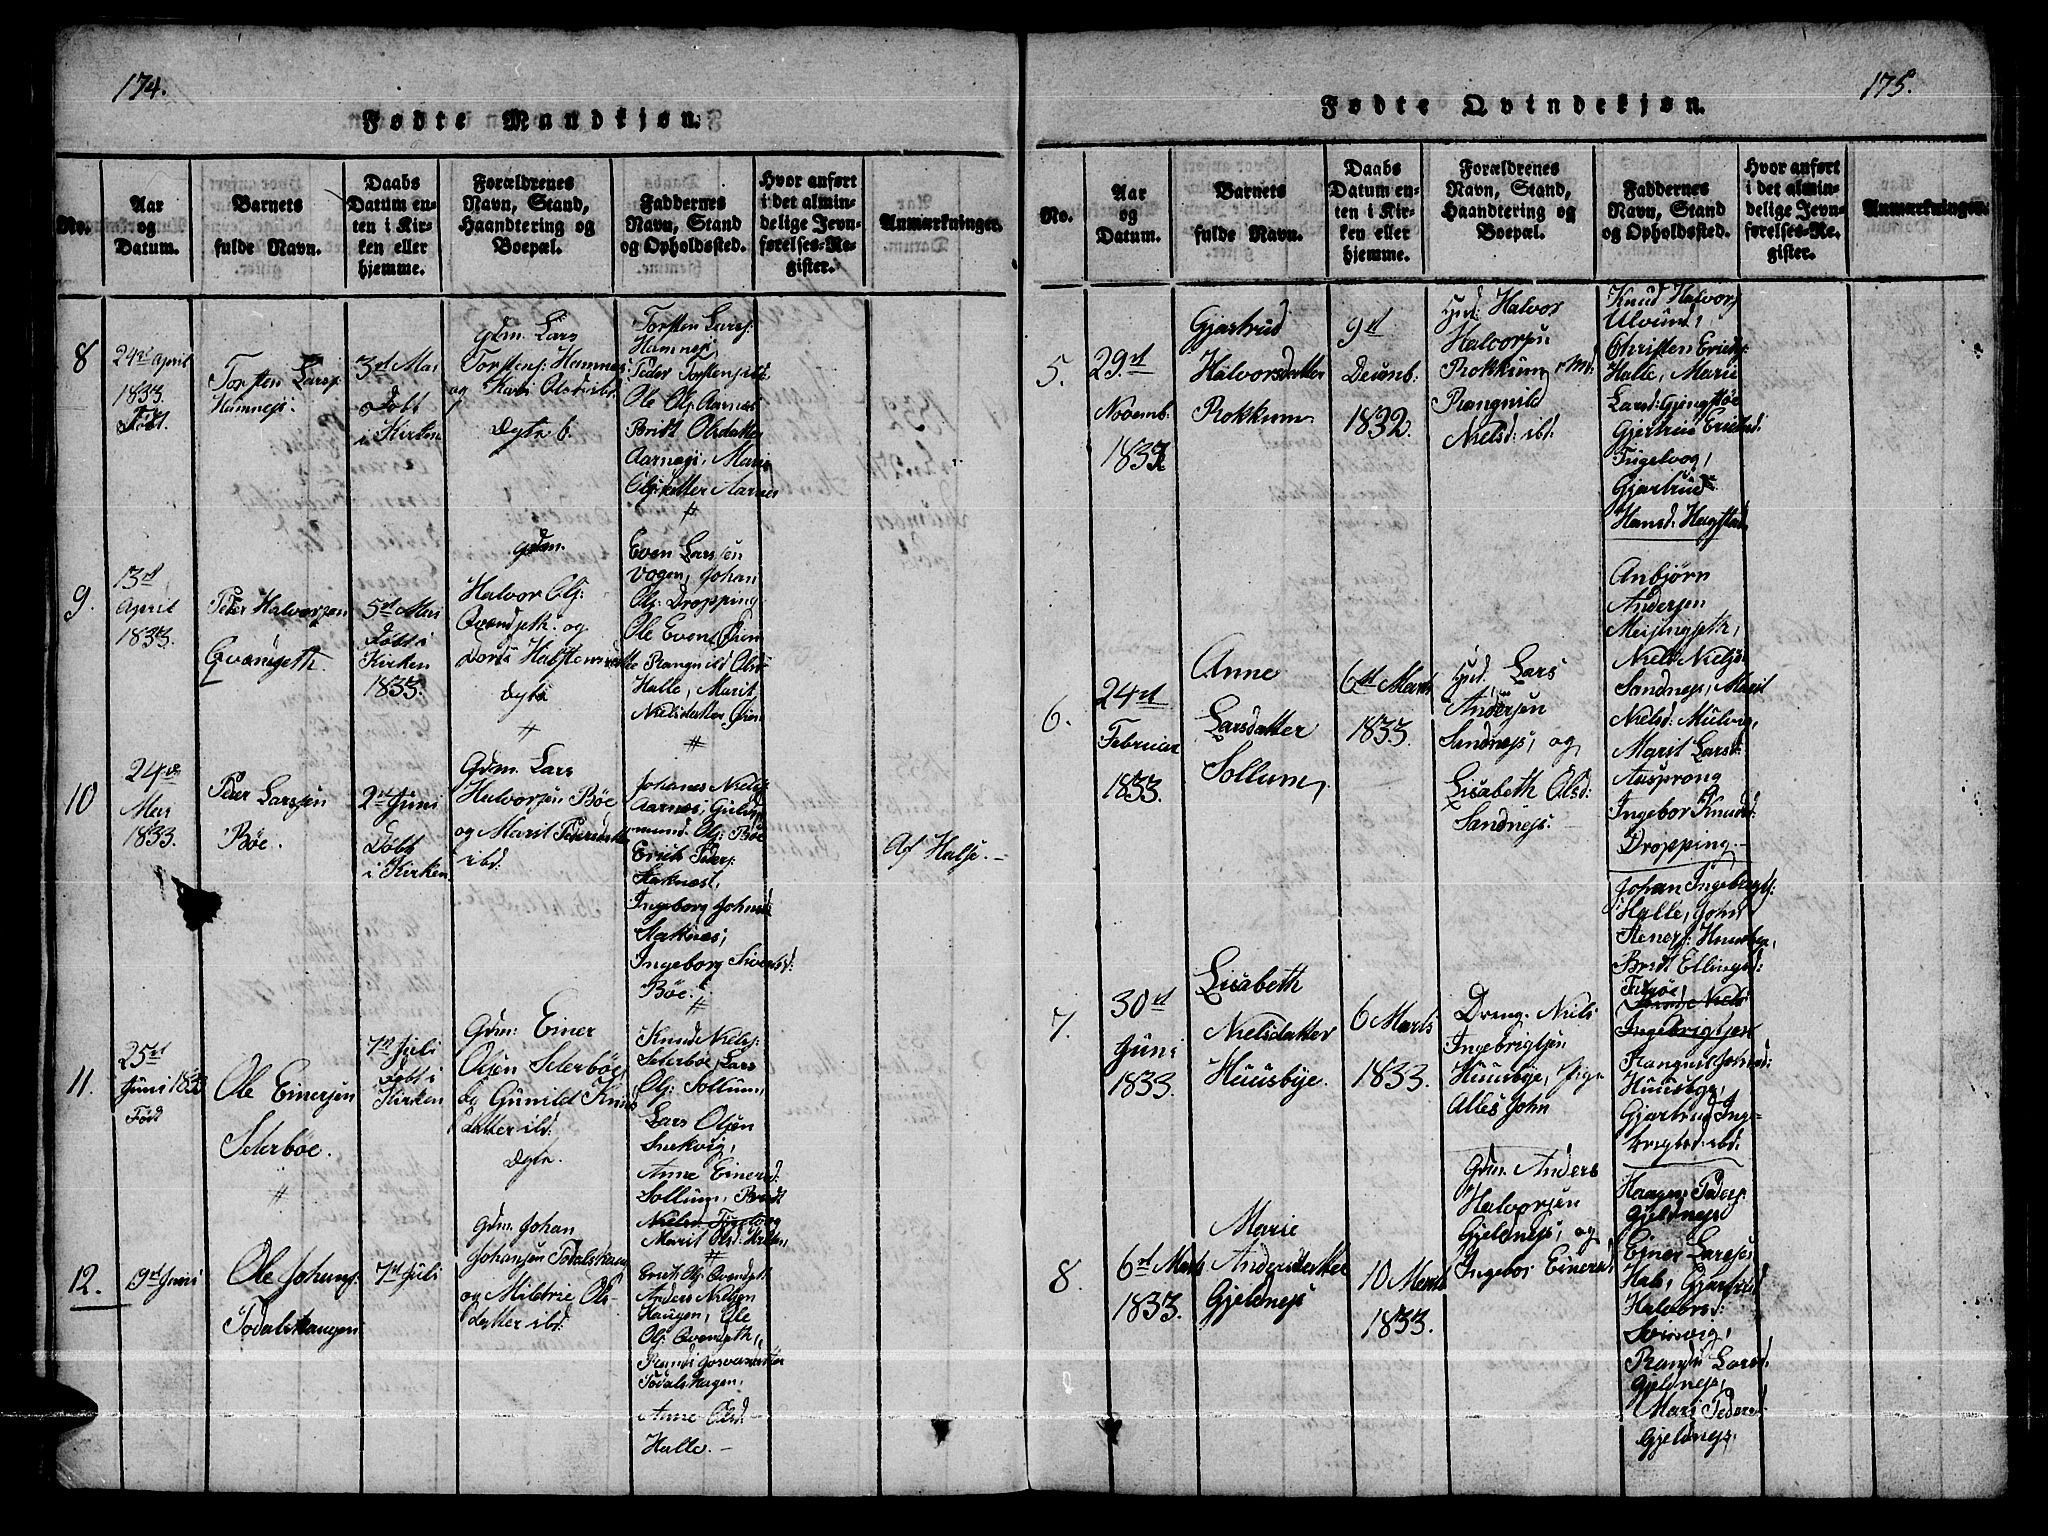 174.
Fødte Mandkjøn.
No.
Aar
og
Datum.
Barnets
fulde Navn.
Daabs
Datum en-
ten i Kir-
ken eller
hjemme.
Forældrenes
Navn, Stand,
Haandtering og
Boepæl.
Faddernes
Navn, Stand
og Opholdssted.
Hvor anført
i det almin-
delige Jevn-
førelses-Re-
gister.
Anmærkninger.
8
24de April
1833.
Født.
Torsten Larss:
Hamnes.
3de Mai
Døbt
i Kirken
Gdm. Lars
Torstens: Hamnes
og Kari Olsdatter
Torsten Larss:
Hamnes,
Peder Torstens:
Ole Ols: Aarnes
Bridt Olsdatter
Aarnes, Marit
Olsdatter Aarnes
9.
13de
April
1833.
Peder Halvorsen
Qvandseth.
5te Mai
Døbt i
Kirken
1833.
Gdm.
Halvor Ols:
Qvandseth. og
Even Larssen
Vogen, Johan
Ols: Dropping
Ole Evens
Rangnild Olsd
Halle, Marit
Nielsdatter
10
24de
Mai
1833.
Peder Larssen
Bøe.
2den Juni
Døbt
i Kirken
Gdm. Lars
Halvorsen Bøe
og Marit Pedersdatter
ibd.
Johanes Niels:
Aarnes,
mund Ols: Bøe
Erich Peders:
Staknæs,
Ingeborg Johnsd
Staknæs,
Ingeborg Siversd:
Bøe.
Af Halse.
11.
25de
Juni 1833
Født
Ole Einersen
Seterbøe.
7de Juli
Døbt i
Kirken
Gdm: Einer
Olsen Seterbøe
og Gunild Knuds
datter ibd:
Knud Niels:
Seterbøe, Lars
Ols: Sollum,
Lars Olsen
Snekvig,
Anne Einersd:
Sollum, Bridt
Marit Olsd:
12.
19de Juni
Ole Johans:
Todalshaugen
7de Juli
Gdm. Johan
Johansen Todalshaugen
og Mildrie Ols-
datter ibd:
Erich Ols: Qvendseth
Anders Nielsen
Haugen, Ole
Ols: Qvendseth,
Todalshagen,
Anne Olsd
Halle.
175.
Fødte Qvindekjøn.
No.
Aar
og
Datum.
Barnets
fulde Navn.
Daabs
Datum en-
ten i Kir-
ken eller
hjemme.
Forældrenes
Navn, Stand,
Haandtering og
Boepæl.
Faddernes
Navn, Stand
og Opholdssted.
Hvor anført
i det almin-
delige Jevn-
førelses-Re-
gister.
Anmærkninger.
5.
29de
Novemb.
Gjertrud
Halvorsdatter
Rokkum
9de
Decemb.
1832.
Hus: Halvor
Halvorsen
Rokkum
Rangnild
Nielsd: ibd:
Knud Halvors:
Ulvund,
Christen Erichs:
Halle, Marie
Larsd: Gjengstøe
Erichsd
Gjertrud
Hansd: Hagstad
6.
24de
Februar
1833.
Anne
Larsdatter
Sollum,
6te Marts
1833.
Hus: Lars
Andersen
Sandnes, og
Lisabeth Olsd:
Sandnes.
Anbjørn
Andersen
Meisingseth,
Niels Niels:
Sandnes, Marit
Nielsd: Mulvig,
Marit Larsd:
Aasprong
Ingebor Knudsd:
Dropping.
7.
30de
Juni
1833.
Lisabeth
Nielsdatter
Huusbye.
6 Marts
1833.
Dreng. Niels
Ingebrigtsen
Huusbye, Pige
Johan Ingebrigts:
Halle, John
Stenes: Huusbye,
Bridt Ellingsd:
Ingebrigtsen
Huusbye,
Gjertrud Inge-
brigtsd: ibd:
8.
6te Marts
1833.
Marie
Andersdatter
Gjeldnes
10 Marts
1833.
Gdm. Anders
Halvorsen
Gjeldnes, og
Ingebor Einersd
Haagen Peders:
Gjeldnes
Einer Larses
Hals, Gjertrud
Halvorsd:
Svinvig,
Randi Larsd.
Gjeldnes,
Mari Pedersd
Gjeldnes.